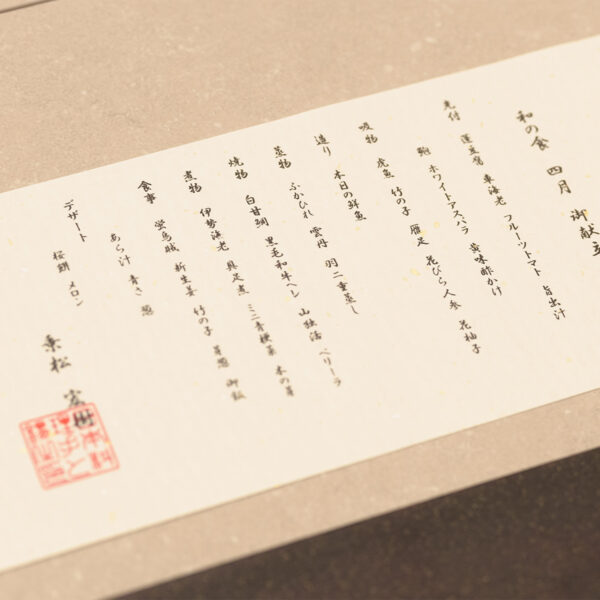 和の食 四月 御献立
先付 蓮豆腐 車海老 フルーツトマト 旨出汁
鮑 ホワイトアスパラ 黄味酢かけ
吸物 虎魚 竹の子 雁足 花びら人参 花柚子
造り 本日の鮮魚
蒸物 ふかひれ 雲丹 羽二重蒸し
焼物 白甘鯛 黒毛和牛ヘレ 山独活 ベリーラ
煮物 伊勢海老 具足煮 ミニ青梗菜 木の芽
食事 蛍烏賊 新生姜 竹の子 芽葱 御飯
あら汁 青さ 葱
デザート
桜餅 メロン
乗松